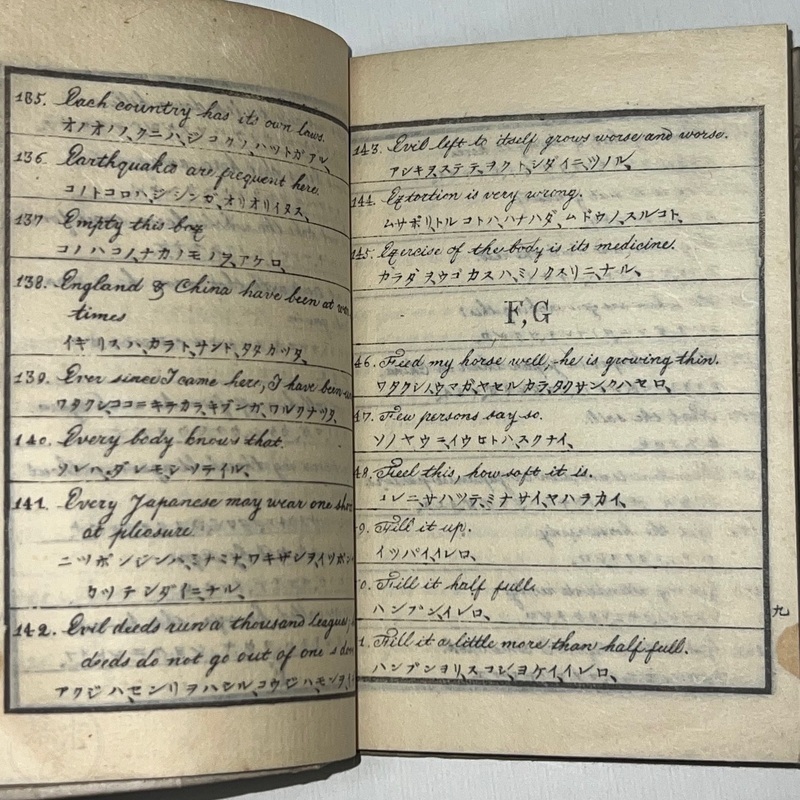 135. Each country has its own laws.
オノオノ、クニハ、ジコクノ、ハツトガアル
136. Earthquakes are frequent here.
コノトコロハ、ジシンガ、オリオリイヌス、
137 Empty this box
コノハコノ、ナカノモノヲ、アケロ、
138. England & China have been at
times
イギリスハ、カラト、サンド、タタカツタ、
139. Ever since I came here, I have been
ワタクシ、ココニキテカラ、キブンガ、ワルクナツタ、
140. Every body knows that.
ソレハ、ダレモシツテイル、
141. Every Japanese may wear one
at pleasure
ニツポンジンハ、ミナミナ、ワキザシヲ、イツポン
カツテンダイニナル、
142. Evil deeds run a thousand leagues,
deeds do not go out of one's
アクジハセンリヲハシル、コウジハ、モンヲ
143. Evil left to itself grows worse and worse.
アシキヲステテ、ヲクト、シダイニ、ツノル、
144. Extortion is very wrong.
ムサボリトルコトハ、ハナハダ、ムドウノ、スルコト、
145. Exercise of the body is its medicine.
カラダヲウゴカスハ、ミノクスリニ、ナル、
F, G
46. Feed my horse well, he is growing thin.
ワタクシノ、ウマガ、ヤセルカラ、タクサン、クハセロ、
47. Few persons say so.
ソノヤウニ、イウヒトハ、スクナイ、
48. Feel this, how soft it is.
コレニサハツテ、ミナサイ、ヤハラカイ、
9. Fill it up.
イツパイ、イレロ、
0. Fill it half full.
ハンブン、イレロ、
1. Fill it a little more than half full.
ハンブンヨリ、スコシ、ヨケイ、イレロ、
九